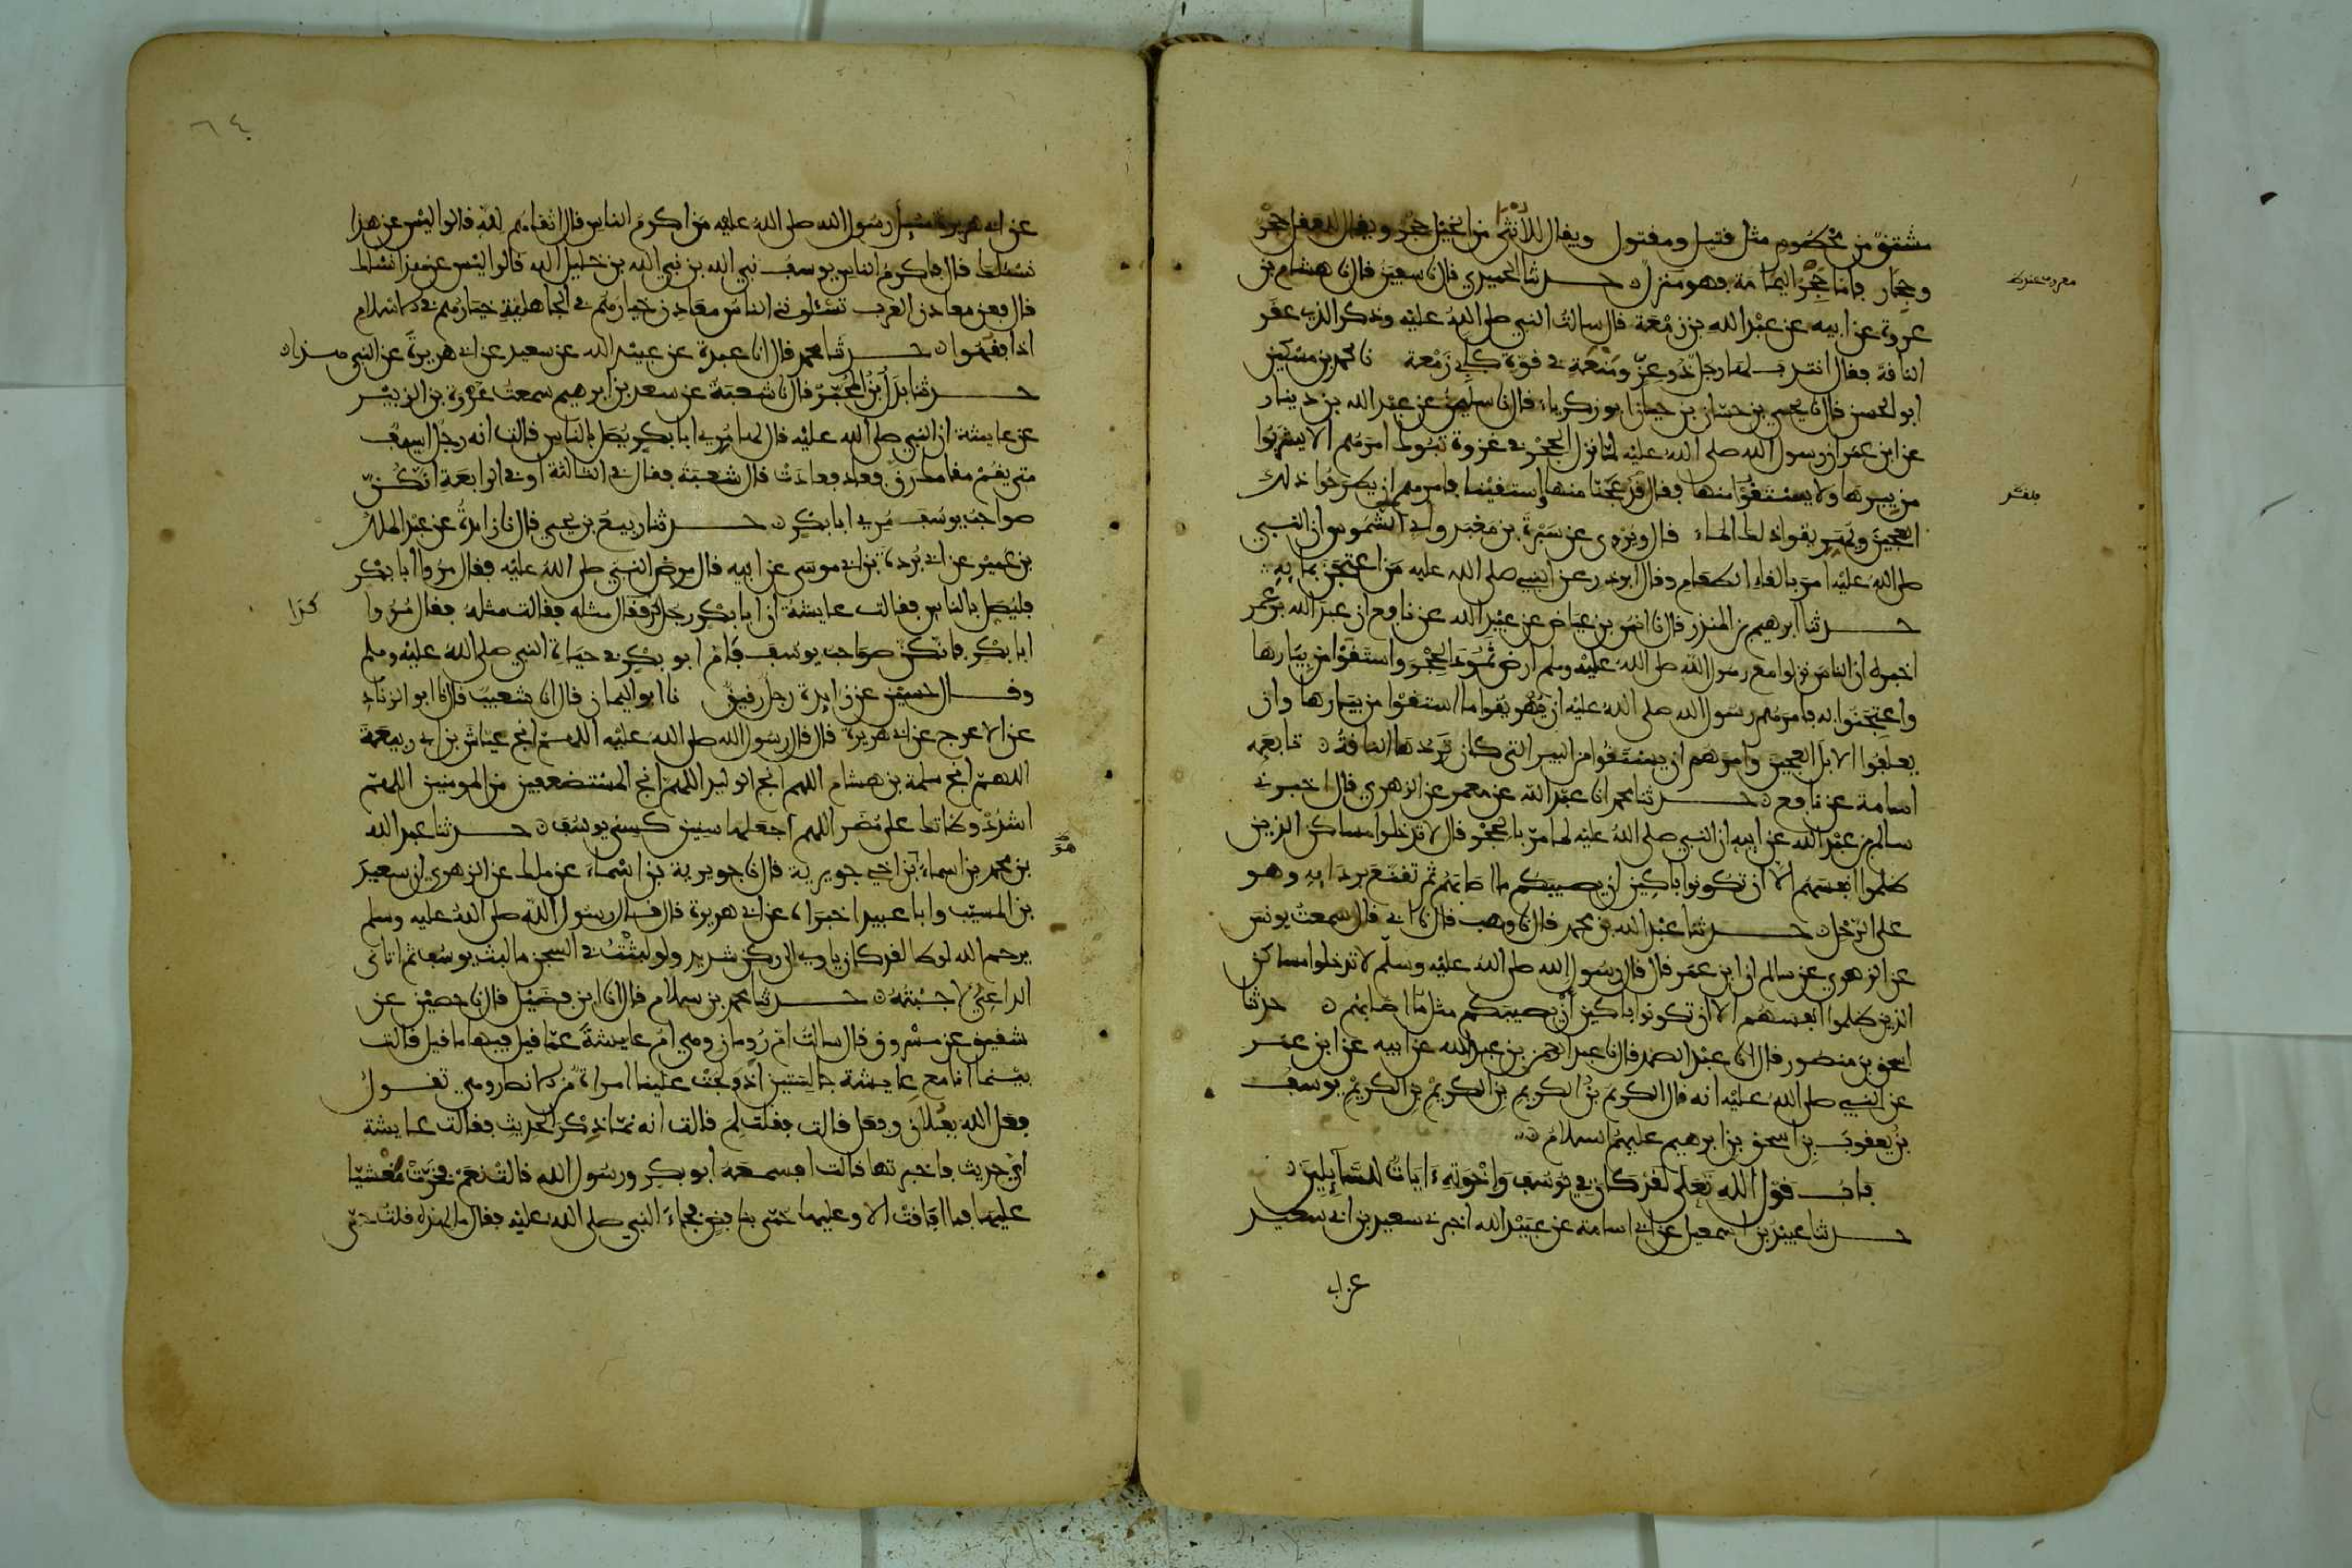 مشتق من محطوم مثل قتيل ومقتول ويقال للأنثى من الخيل حجر ويقال للعقل حجر
وحجى فاما حجر اليمامة فهو منزل حدثنا الحميدي قال نا سفين قال نا هشام بن
عروة عن ابيه عن عبد الله بن زمعة قال سالت النبي صلى الله عليه وذكر الذي عقر
الناقة فقال انتدب لها رجل ذو عز ومنعة في قوة كابي زمعة نا محمد بن مسكين
ابو الحسن قال نا يحيى بن حسان بن حيان ابو زكرياء قال نا سليمن عن عبد الله بن دينار
عن ابن عمر ان رسول الله صلى الله عليه لما نزل الحجر في غزوة تبوك امرهم الا يشربوا
من بيرها ولا يستقوا منها فقالوا قد عجنا منها واستقينا فامرهم ان يطرحوا ذلك
العجين ويهريقوا ذلك الماء قال ويروى عن سبرة بن معبد وابي الشموس ان النبي
صلى الله عليه امر بالقاء الطعام وقال ابو ذر عن النبي صلى الله عليه من اعتجن بمايه
حدثنا ابرهيم بن المنذر قال نا انس بن عياض عن عبيد الله عن نافع ان عبد الله بن عمر
اخبره ان الناس نزلوا مع رسول الله صلى الله عليه وسلم ارض ثمود الحجر واستقوا من بيارها
واعتجنوا به فامرهم رسول الله صلى الله عليه ان يهريقوا ما استقوا من بيارها وان
يعلفوا الابل العجين وامرهم ان يستقوا من البير التي كان تردها الناقة تابعه
اسامة عن نافع حدثنا محمد انا عبد الله عن معمر عن الزهري قال اخبرني
سالم بن عبد الله عن ابيه ان النبي صلى الله عليه لما مر بالحجر قال لا تدخلوا مساكن الذين
ظلموا انفسهم الا ان تكونوا باكين ان يصيبكم ما اصابهم ثم تقنع بردايه وهو
على الرحل حدثنا عبد الله بن محمد قال نا وهب قال نا ابي قال سمعت يونس
عن الزهري عن سالم ان ابن عمر قال قال رسول الله صلى الله عليه وسلم لا تدخلوا مساكن
الذين ظلموا انفسهم الا ان تكونوا باكين ان يصيبكم مثل ما اصابهم حدثنا
اسحق بن منصور قال انا عبد الصمد قال نا عبد الرحمن بن عبد الله عن ابيه عن ابن عمر
عن النبي صلى الله عليه انه قال الكريم بن الكريم بن الكريم بن الكريم يوسف
بن يعقوب بن اسحق بن ابرهيم عليهم السلام
باب قول الله تعلى لقد كان في يوسف واخوته ءايات للسايلين
حدثنا عبيد بن اسمعيل عن ابي اسامة عن عبيد الله اخبرني سعيد بن ابي سعيد
عن ابي
٦٤
عن ابي هريرة سيل رسول الله صلى الله عليه من اكرم الناس قال اتقاهم لله قالوا ليس عن هذا
نسئلك قال فاكرم الناس يوسف نبي الله بن نبي الله بن خليل الله قالوا ليس عن هذا نسئلك
قال فعن معادن العرب تسئلوني الناس معادن خيارهم في الجاهلية خيارهم في الاسلام
اذا فقهوا حدثنا محمد قال انا عبدة عن عبيد الله عن سعيد عن ابي هريرة عن النبي بهذا
حدثنا بدل بن المحبر قال نا شعبة عن سعد بن ابرهيم سمعت عروة بن الزبير
عن عايشة ان النبي صلى الله عليه قال لها مري ابا بكر يصل بالناس قالت انه رجل اسيف
متى يقم مقامك رق فعاد فعادت قال شعبة فقال في الثالثة او في الرابعة انكن
صواحب يوسف مري ابا بكر حدثنا ربيع بن يحيى قال نا زايدة عن عبد الملك
بن عمير عن ابي بردة بن ابي موسى عن ابيه قال مرض النبي صلى الله عليه فقال مروا ابا بكر
فليصل بالناس فقالت عايشة ان ابا بكر رجل كذا فقال مثله فقالت مثله فقال مروا
ابا بكر فانكن صواحب يوسف فام ابو بكر في حياة النبي صلى الله عليه وسلم
وقال حسين عن زايدة رجل رقيق نا ابو اليمان قال انا شعيب قال نا ابو الزناد
عن الاعرج عن ابي هريرة قال قال رسول الله صلى الله عليه اللهم انج عياش بن ابي ربيعة
اللهم انج سلمة بن هشام اللهم انج الوليد اللهم انج المستضعفين من المومنين اللهم
اشدد وطاتك على مضر اللهم اجعلها سنين كسني يوسف حدثنا عبد الله
بن محمد بن اسماء بن اخي جويرية قال نا جويرية بن اسماء عن ملك عن الزهري ان سعيد
بن المسيب وابا عبيد اخبراه عن ابي هريرة قال قال رسول الله صلى الله عليه وسلم
يرحم الله لوطا لقد كان ياوي الى ركن شديد ولو لبثت في السجن ما لبث يوسف ثم اتاني
الداعي لاجبته حدثنا محمد بن سلام قال انا ابن فضيل قال نا حصين عن
شقيق عن مسروق قال سالت ام رومان وهي ام عايشة عما قيل فيها ما قيل قالت
بينما انا مع عايشة جالستين اذ ولجت علينا امراة من الانصار وهي تقول
فعل الله بفلان وفعل قالت فقلت لم قالت انه نما ذكر الحديث فقالت عايشة
اي حديث فاخبرتها قالت افسمعه ابو بكر ورسول الله قالت نعم فخرت مغشيا
عليها فما افاقت الا وعليها حمى بنافض فجاء النبي صلى الله عليه فقال ما لهذه قلت حمى